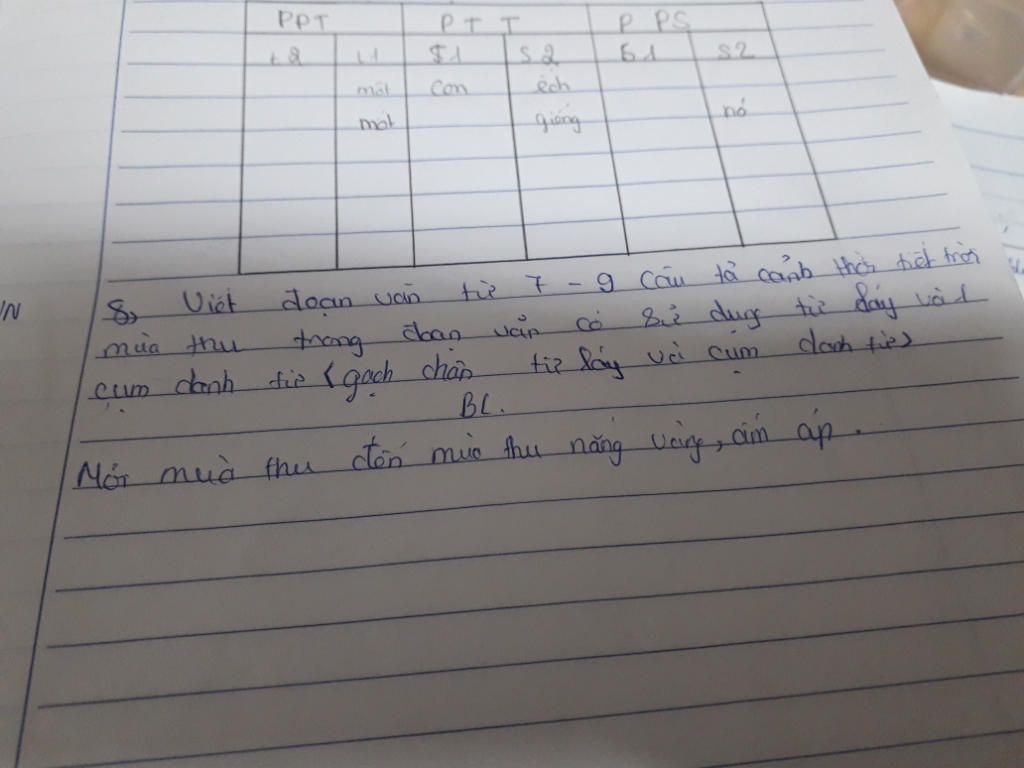 PPT PTT PPS
t2 t1 T1 S2 S1 S2
một con ếch
một giếng nó
8, Viết đoạn văn từ 7 - 9 câu tả cảnh thời tiết trời
mùa thu trong đoạn văn có sử dụng từ láy và 1
cụm danh từ (gạch chân từ láy và cụm danh từ)
BL.
mùa thu đến mùa thu nắng vàng, ấm áp.